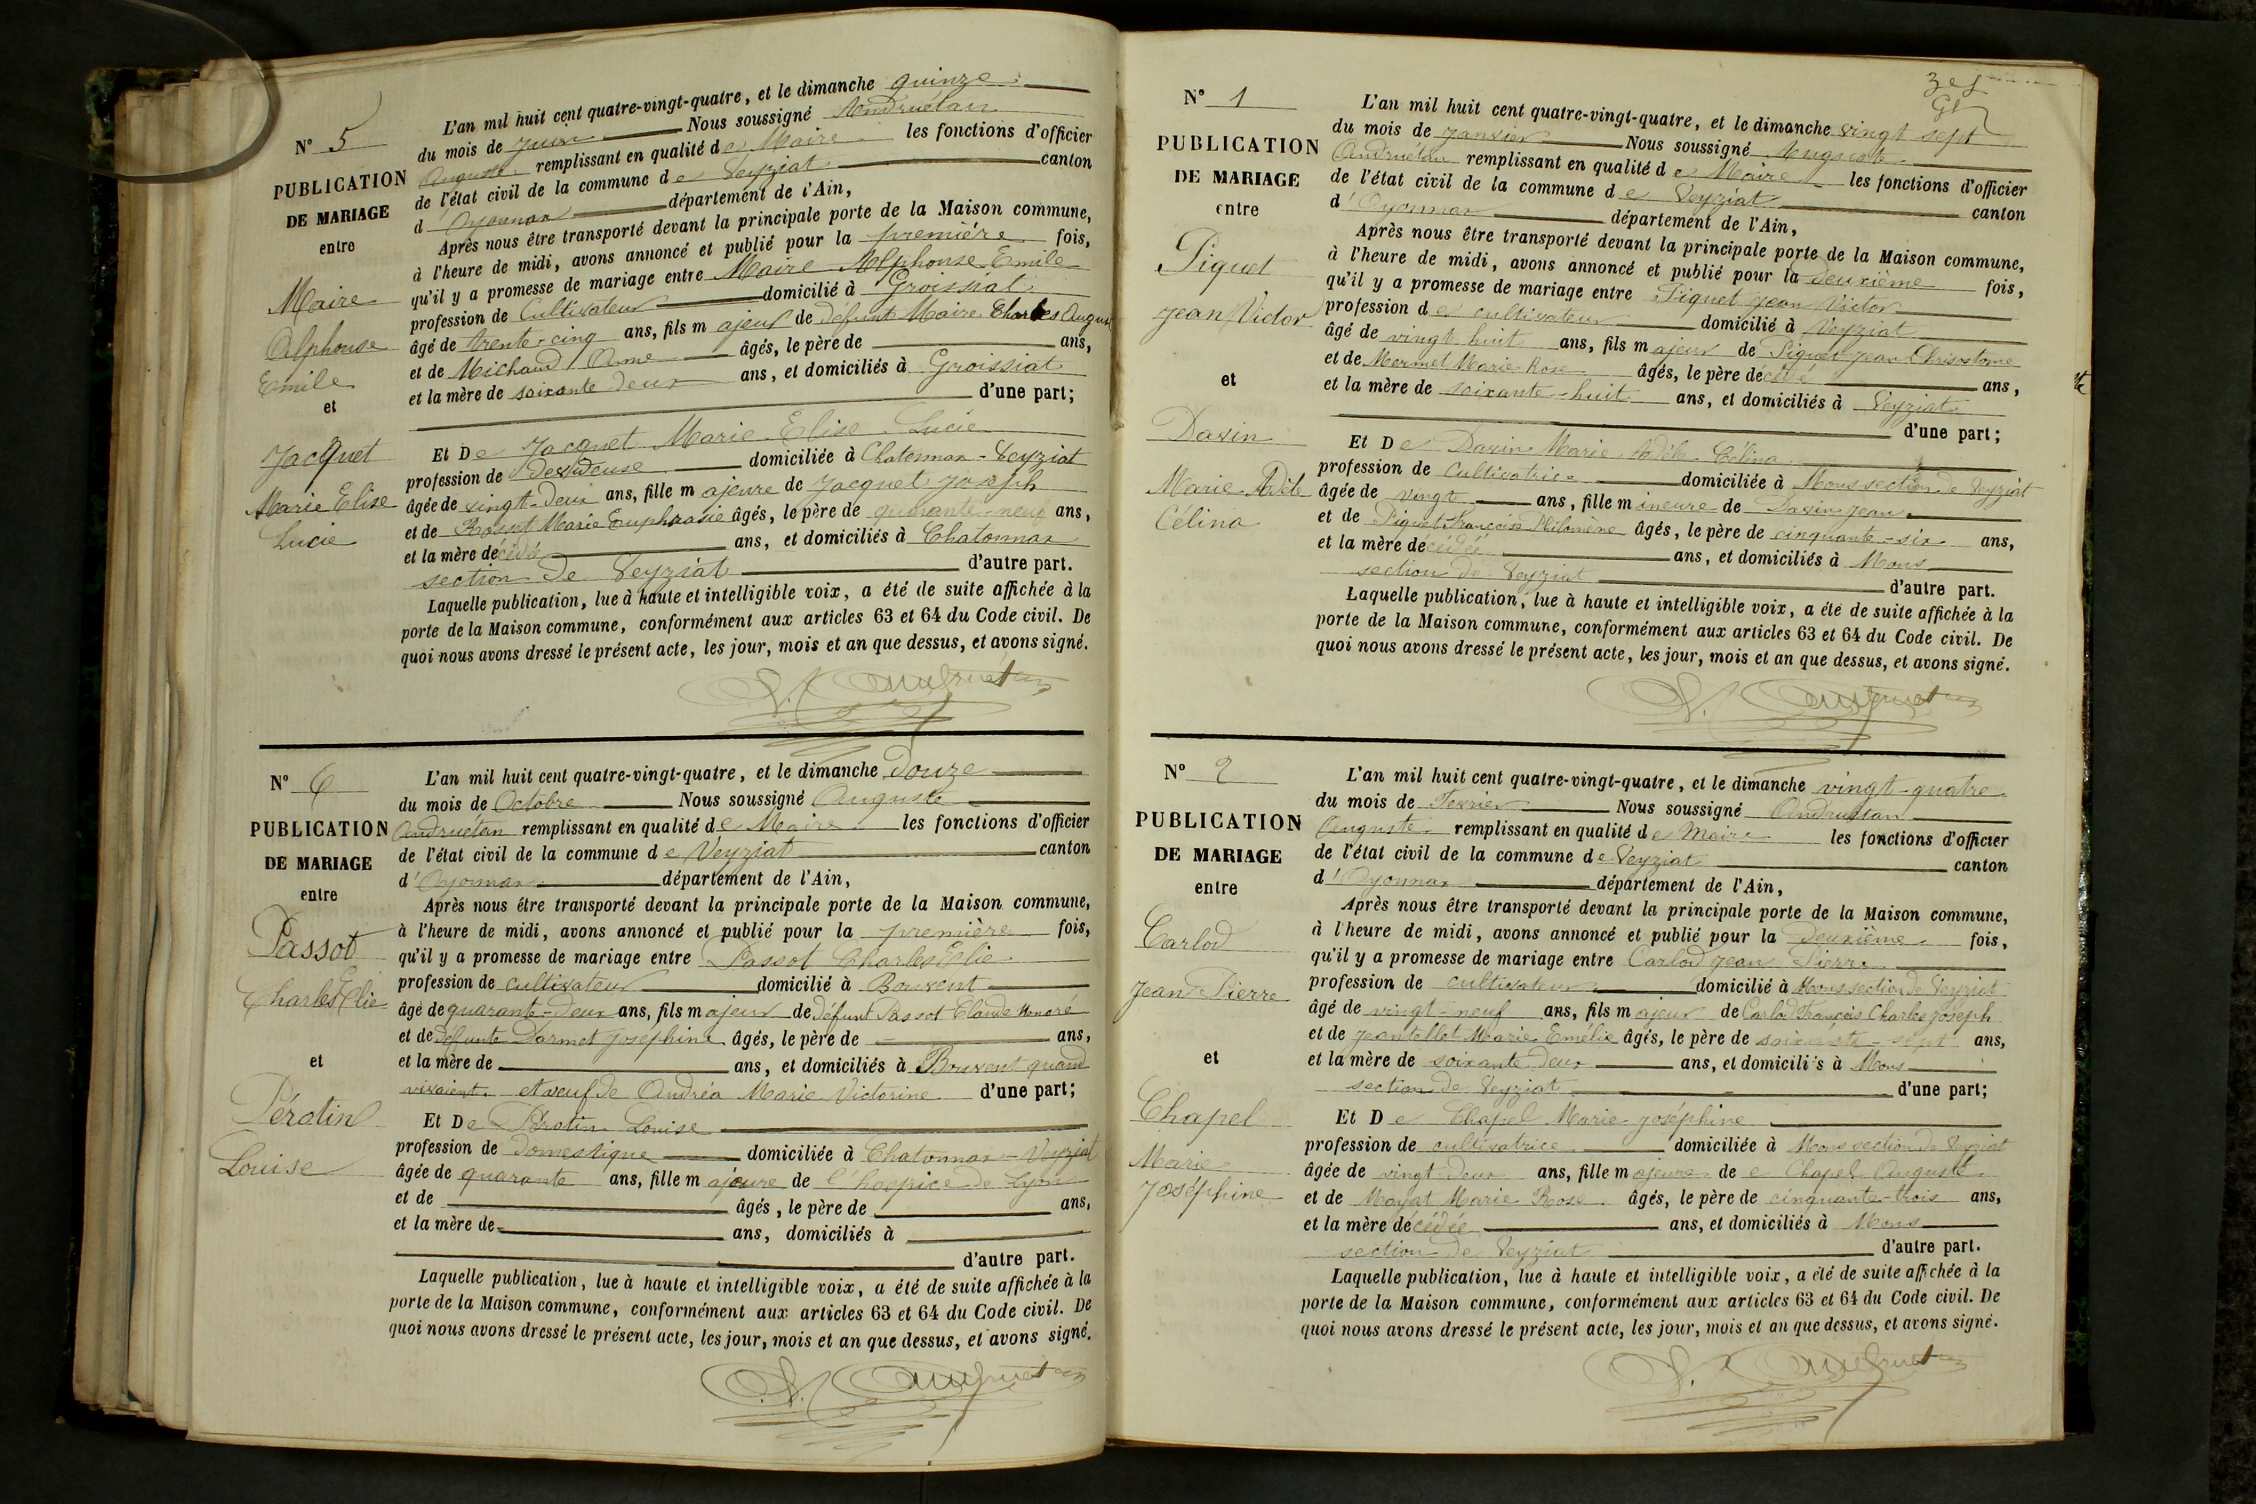 N° 5
PUBLICATION
DE MARIAGE
entre
Maire
Alphonse
Emile
et
Jacquet
Marie Elise
Lucie
L'an mil huit cent quatre-vingt-quatre, et le dimanche quinze
du mois de juin Nous soussigné Andruétan
Auguste remplissant en qualité de Maire les fonctions d'officier
de l'état civil de la commune de Veyziat canton
d'Oyonnax département de l'Ain,
Après nous être transporté devant la principale porte de la Maison commune,
à l'heure de midi, avons annoncé et publié pour la première fois,
qu'il y a promesse de mariage entre Maire Alphonse Emile
profession de Cultivateur domicilié à Groissiat
âgé de trente-cinq ans, fils majeur de défunt Maire Charles August
et de Michaud Anne âgés, le père de ans,
et la mère de soixante deux ans, et domiciliés à Groissiat
d'une part;
Et De Jacquet Marie Elise Lucie
profession de Dévideuse domiciliée à Chatonnax-Veyziat
âgée de vingt-deux ans, fille majeure de Jacquet Joseph
et de Marie Euphrasie âgés, le père de quarante-neuf ans,
et la mère décédée ans, et domiciliés à Chatonnax
section de Veyziat d'autre part.
Laquelle publication, lue à haute et intelligible voix, a été de suite affichée à la
porte de la Maison commune, conformément aux articles 63 et 64 du Code civil. De
quoi nous avons dressé le présent acte, les jour, mois et an que dessus, et avons signé.
N° 6
PUBLICATION
DE MARIAGE
entre
Passot
Charles Elie
et
Pérotin
Louise
L'an mil huit cent quatre-vingt-quatre, et le dimanche douze
du mois de Octobre Nous soussigné Auguste
Andruétan remplissant en qualité de Maire les fonctions d'officier
de l'état civil de la commune de Veyziat canton
d'Oyonnax département de l'Ain,
Après nous être transporté devant la principale porte de la Maison commune,
à l'heure de midi, avons annoncé et publié pour la première fois,
qu'il y a promesse de mariage entre Passot Charles Elie
profession de cultivateur domicilié à Bouvent
âgé de quarante-deux ans, fils majeur de défunt Passot Claude Honoré
et de défunte Darmet Joséphine âgés, le père de ans,
et la mère de ans, et domiciliés à Bouvent quand
vivaient et veuf de Andréa Marie Victorine d'une part;
Et De Pérotin Louise
profession de domestique domiciliée à Chatonnax-Veyziat
âgée de quarante ans, fille majeure de l'hospice de Lyon
et de âgés, le père de ans,
et la mère de ans, domiciliés à
d'autre part.
Laquelle publication, lue à haute et intelligible voix, a été de suite affichée à la
porte de la Maison commune, conformément aux articles 63 et 64 du Code civil. De
quoi nous avons dressé le présent acte, les jour, mois et an que dessus, et avons signé.
N° 1
PUBLICATION
DE MARIAGE
entre
Piquet
Jean Victor
et
Davin
Marie Adèle
Célina
L'an mil huit cent quatre-vingt-quatre, et le dimanche vingt sept
du mois de Janvier Nous soussigné Auguste
Andruétan remplissant en qualité de Maire les fonctions d'officier
de l'état civil de la commune de Veyziat canton
d'Oyonnax département de l'Ain,
Après nous être transporté devant la principale porte de la Maison commune,
à l'heure de midi, avons annoncé et publié pour la deuxième fois,
qu'il y a promesse de mariage entre Piquet Jean Victor
profession de cultivateur domicilié à Veyziat
âgé de vingt huit ans, fils majeur de Piquet Jean Chrisostome
et de Mermet Marie Rose âgés, le père décédé ans,
et la mère de soixante-huit ans, et domiciliés à Veyziat
d'une part;
Et De Davin Marie Adèle Célina
profession de Cultivatrice domiciliée à Mons section de Veyziat
âgée de vingt ans, fille mineure de Davin Jean
et de Piquet Françoise Philomène âgés, le père de cinquante-six ans,
et la mère décédée ans, et domiciliés à Mons
section de Veyziat d'autre part.
Laquelle publication, lue à haute et intelligible voix, a été de suite affichée à la
porte de la Maison commune, conformément aux articles 63 et 64 du Code civil. De
quoi nous avons dressé le présent acte, les jour, mois et an que dessus, et avons signé.
N° 2
PUBLICATION
DE MARIAGE
entre
Carlod
Jean Pierre
et
Chapel
Marie
Joséphine
L'an mil huit cent quatre-vingt-quatre, et le dimanche vingt-quatre
du mois de Fevrier Nous soussigné Andruétan
Auguste remplissant en qualité de Maire les fonctions d'officier
de l'état civil de la commune de Veyziat canton
d'Oyonnax département de l'Ain,
Après nous être transporté devant la principale porte de la Maison commune,
à l'heure de midi, avons annoncé et publié pour la deuxième fois,
qu'il y a promesse de mariage entre Carlod Jean Pierre
profession de cultivateur domicilié à Mons section de Veyziat
âgé de vingt-neuf ans, fils majeur de Carlod François Charles Joseph
et de Jeantellet Marie Emélie âgés, le père de soixante-sept ans,
et la mère de soixante deux ans, et domiciliés à Mons
section de Veyziat d'une part;
Et De Chapel Marie Joséphine
profession de cultivatrice domiciliée à Mons section de Veyziat
âgée de vingt-deux ans, fille majeure de e Chapel Auguste
et de Moyat Marie Rose âgés, le père de cinquante-trois ans,
et la mère décédée ans, et domiciliés à Mons
section de Veyziat d'autre part.
Laquelle publication, lue à haute et intelligible voix, a été de suite affichée à la
porte de la Maison commune, conformément aux articles 63 et 64 du Code civil. De
quoi nous avons dressé le présent acte, les jour, mois et an que dessus, et avons signé.